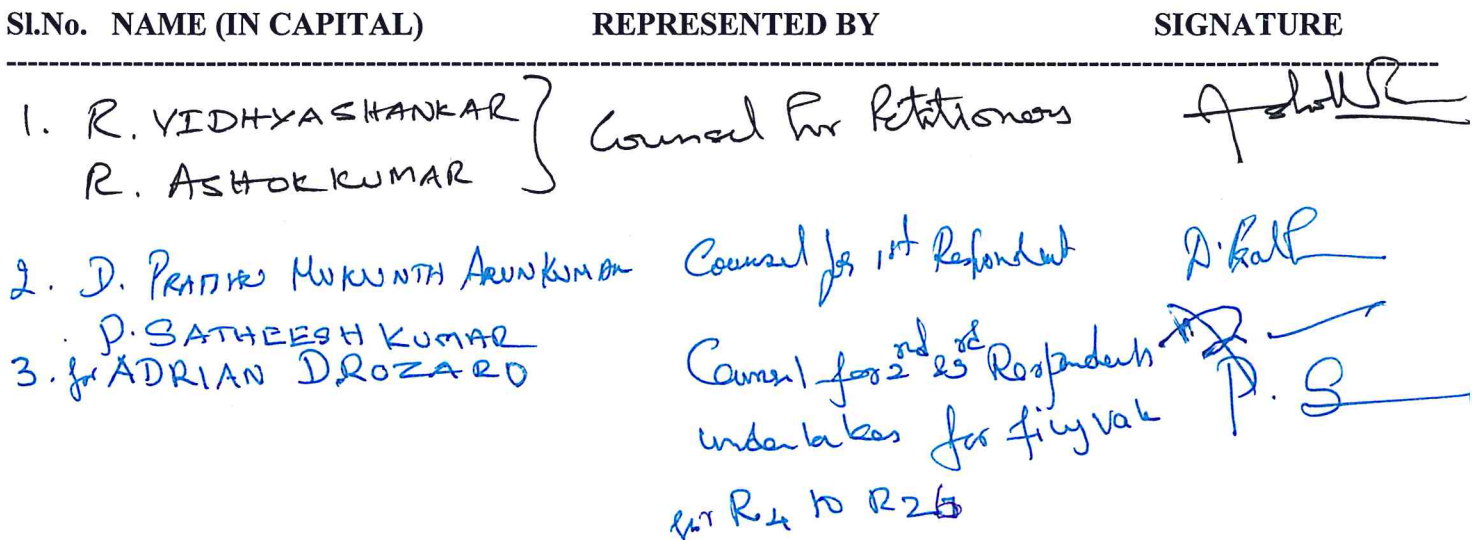 Sl.No. NAME (IN CAPITAL) REPRESENTED BY SIGNATURE
1. R. VIDHYASHANKAR Counsel for Petitioners
R. ASHOKKUMAR
2. D. MUKUNTH ARUNKUMAR Counsel for 1st Respondent
P. SATHEESH KUMAR
3. for ADRIAN D. ROZARO Counsel for 2nd & 3rd Respondents
undertakes for
for R4 to